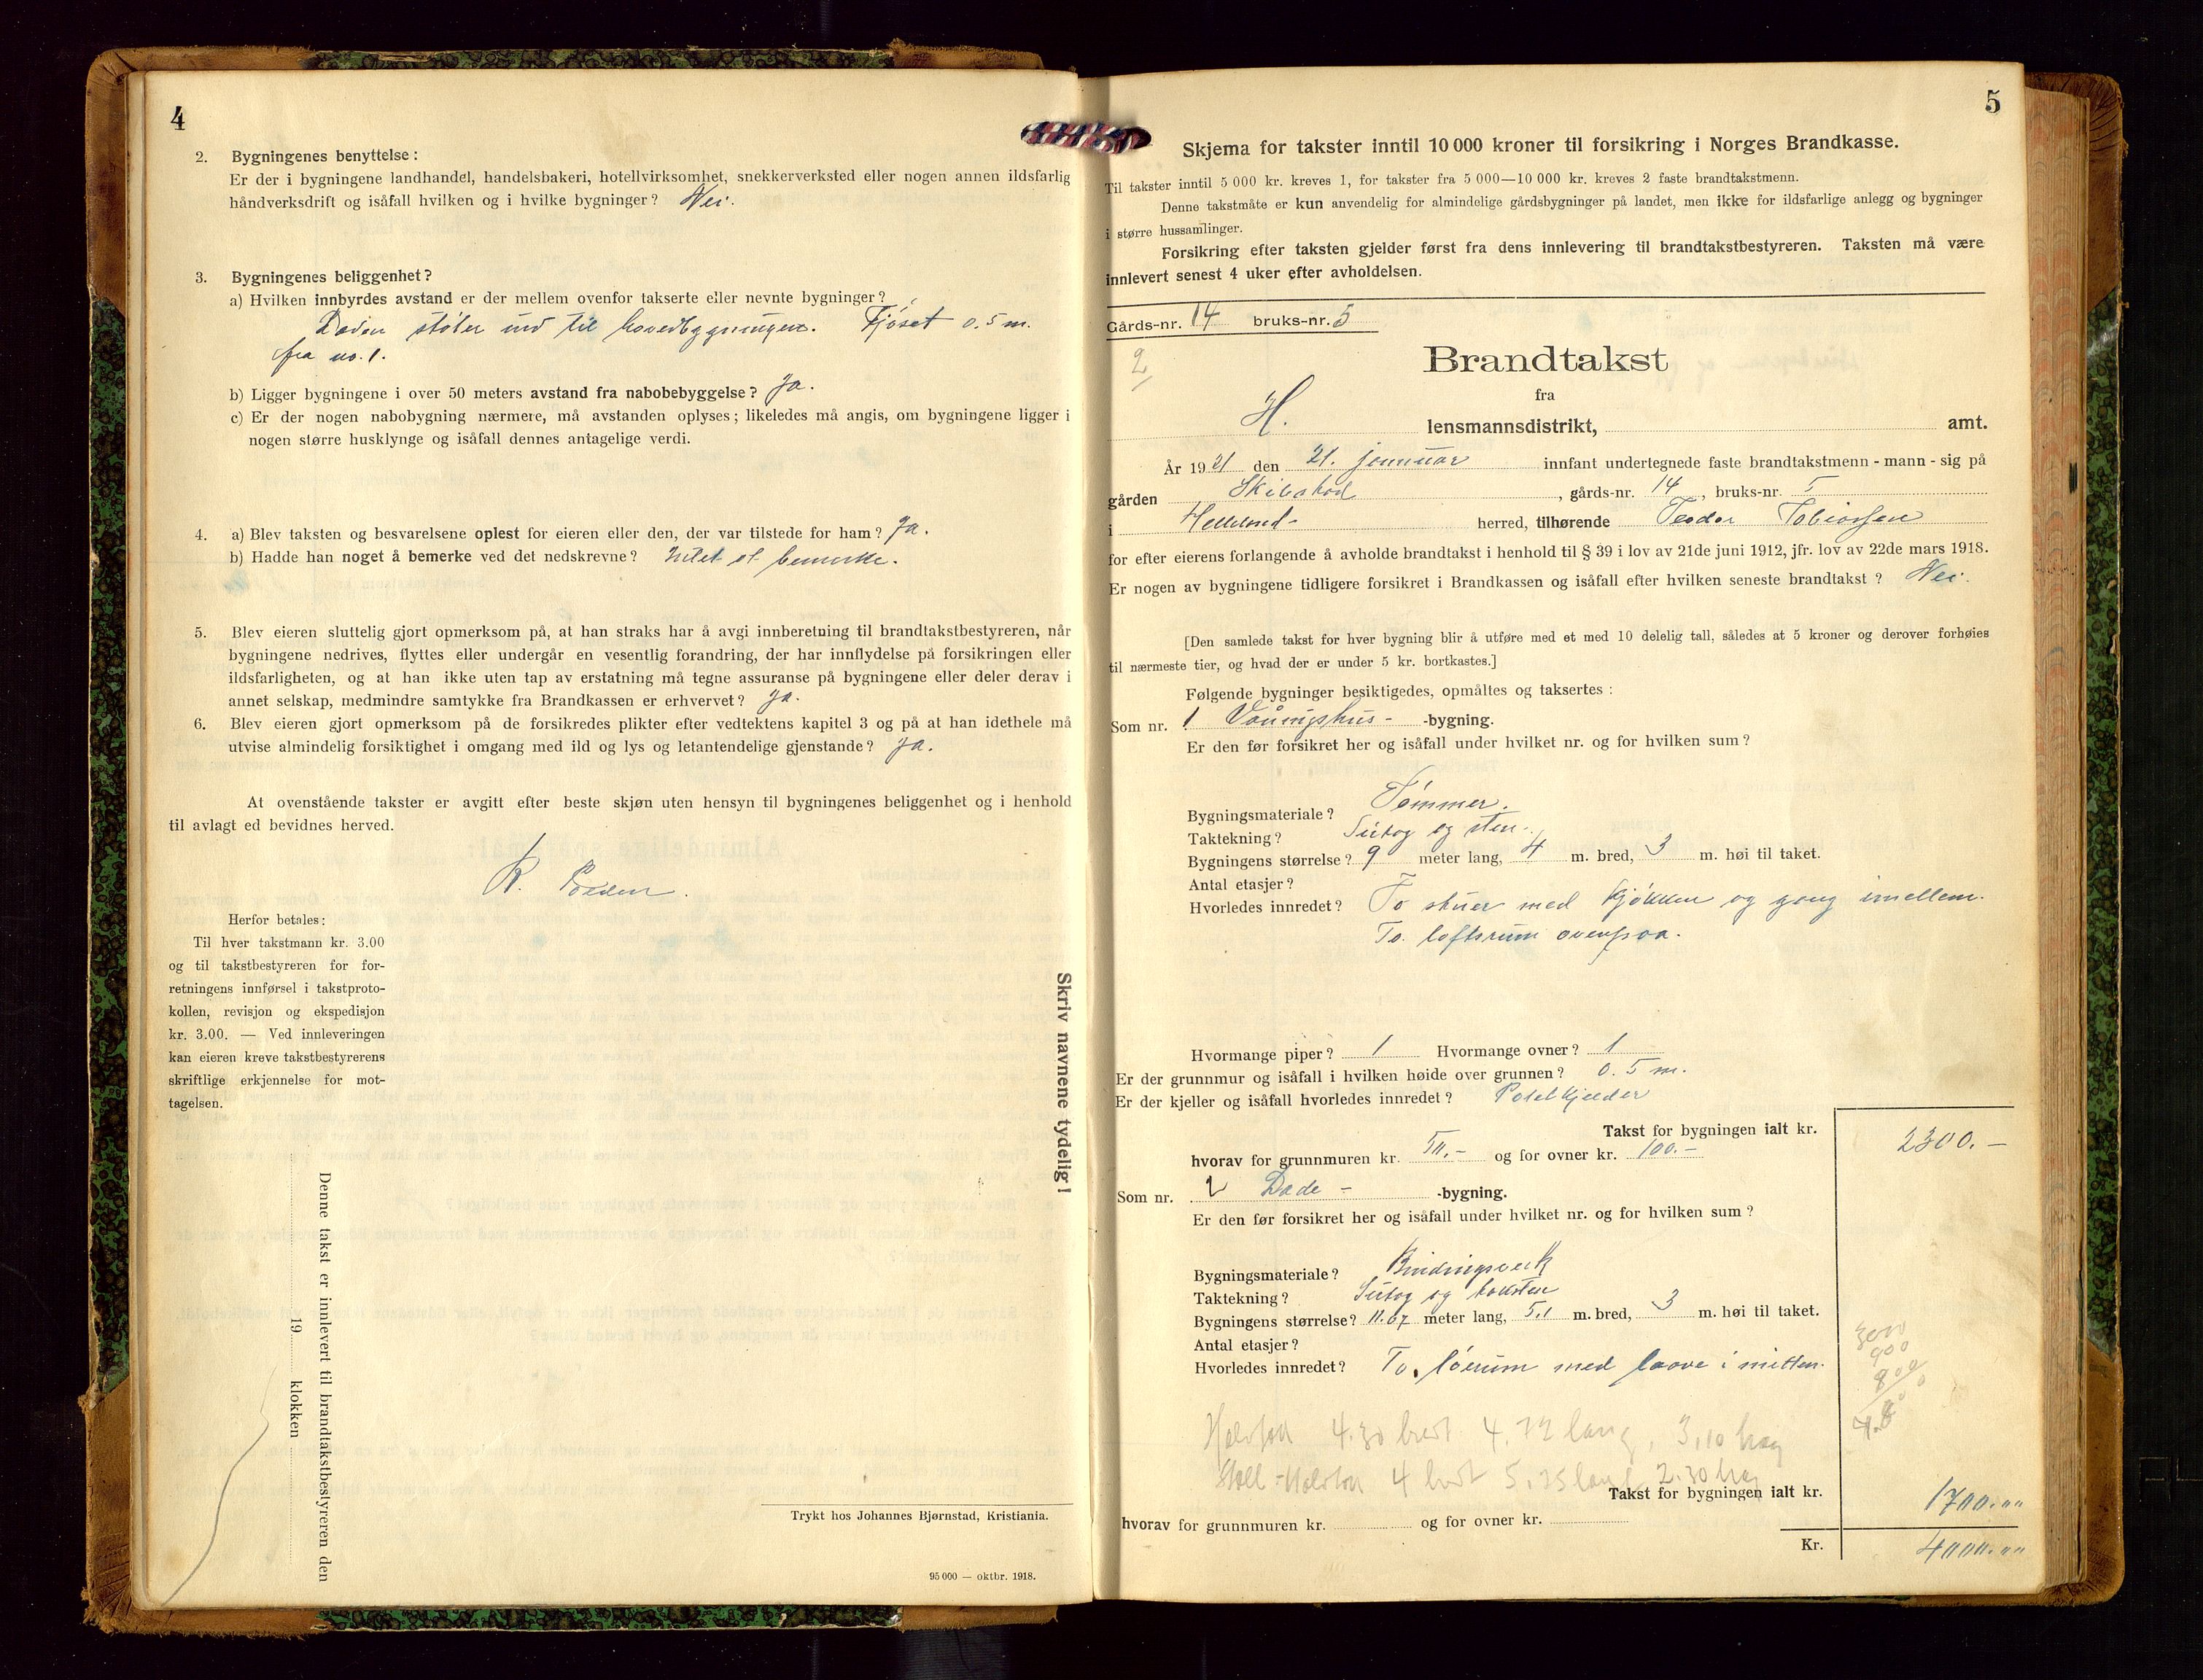 4
2. Bygningenes benyttelse:
Er der i bygningene landhandel, handelsbakeri, hotellvirksomhet, snekkerverksted eller nogen annen ildsfarlig
håndverksdrift og isåfall hvilken og i hvilke bygninger? Nei.
3. Bygningenes beliggenhet?
a) Hvilken innbyrdes avstand er der mellem ovenfor takserte eller nevnte bygninger?
Laden støter ind til hovedbygningen. Fjøset 0.5 m.
fra no. 1.
b) Ligger bygningene i over 50 meters avstand fra nabobebyggelse? Ja.
c) Er der nogen nabobygning nærmere, må avstanden oplyses; likeledes må angis, om bygningene ligger i
nogen større husklynge og isåfall dennes antagelige verdi.
4. a) Blev taksten og besvarelsene oplest for eieren eller den, der var tilstede for ham? Ja.
b) Hadde han noget å bemerke ved det nedskrevne? Intet at bemerke.
5. Blev eieren sluttelig gjort opmerksom på, at han straks har å avgi innberetning til brandtakstbestyreren, når
bygningene nedrives, flyttes eller undergår en vesentlig forandring, der har innflydelse på forsikringen eller
ildsfarligheten, og at han ikke uten tap av erstatning må tegne assuranse på bygningene eller deler derav i
annet selskap, medmindre samtykke fra Brandkassen er erhvervet? Ja.
6. Blev eieren gjort opmerksom på de forsikredes plikter efter vedtektens kapitel 3 og på at han idethele må
utvise almindelig forsiktighet i omgang med ild og lys og letantendelige gjenstande? Ja.
At ovenstående takster er avgitt efter beste skjøn uten hensyn til bygningenes beliggenhet og i henhold
til avlagt ed bevidnes herved.
Herfor betales:
Til hver takstmann kr. 3.00
og til takstbestyreren for for-
retningens innførsel i takstproto-
kollen, revisjon og ekspedisjon
kr. 3.00. — Ved innleveringen
kan eieren kreve takstbestyrerens
skriftlige erkjennelse for mot-
tagelsen.
Denne takst er innlevert til brandtakstbestyreren den
19 klokken
Skriv navnene tydelig!
Trykt hos Johannes Bjørnstad, Kristiania.
95 000 — oktbr. 1918.
5
Skjema for takster inntil 10 000 kroner til forsikring i Norges Brandkasse.
Til takster inntil 5 000 kr. kreves 1, for takster fra 5 000—10 000 kr. kreves 2 faste brandtakstmenn.
Denne takstmåte er kun anvendelig for almindelige gårdsbygninger på landet, men ikke for ildsfarlige anlegg og bygninger
i større hussamlinger.
Forsikring efter taksten gjelder først fra dens innlevering til brandtakstbestyreren. Taksten må være
innlevert senest 4 uker efter avholdelsen.
Gårds-nr. 14 bruks-nr. 5
2
Brandtakst
fra
H. lensmannsdistrikt, amt.
År 1921 den 21. januar innfant undertegnede faste brandtakstmenn - mann - sig på
gården Skibstad, gårds-nr. 14, bruks-nr. 5
i Helleland herred, tilhørende Teodor Tobiassen
for efter eierens forlangende å avholde brandtakst i henhold til § 39 i lov av 21de juni 1912, jfr. lov av 22de mars 1918.
Er nogen av bygningene tidligere forsikret i Brandkassen og isåfall efter hvilken seneste brandtakst? Nei.
[Den samlede takst for hver bygning blir å utføre med et med 10 delelig tall, således at 5 kroner og derover forhøies
til nærmeste tier, og hvad der er under 5 kr. bortkastes.]
Følgende bygninger besiktigedes, opmåltes og taksertes:
Som nr. 1 Våningshus- -bygning.
Er den før forsikret her og isåfall under hvilket nr. og for hvilken sum?
Bygningsmateriale? Tømmer.
Taktekning? Sutag og sten.
Bygningens størrelse? 9 meter lang, 4 m. bred, 3 m. høi til taket.
Antal etasjer?
Hvorledes innredet? To stuer med kjøkken og gang imellem.
To loftsrum ovenpaa.
Hvormange piper? 1 Hvormange ovner? 1
Er der grunnmur og isåfall i hvilken høide over grunnen? 0.5 m.
Er der kjeller og isåfall hvorledes innredet? Potetkjelder
Takst for bygningen ialt kr. 2300.—
hvorav for grunnmuren kr. 50.- og for ovner kr. 100.-
Som nr. 2 Lade- -bygning.
Er den før forsikret her og isåfall under hvilket nr. og for hvilken sum?
Bygningsmateriale? Bindingsverk
Taktekning? Sutag og taksten
Bygningens størrelse? 11.67 meter lang, 5,1 m. bred, 3 m. høi til taket.
Antal etasjer?
Hvorledes innredet? To løerum med laave i midten.
3000
900
800
4.30 bredt 4.72 lang, 3,10 høg
4 bredt 5.25 lang 2.30 høg
Takst for bygningen ialt kr. 1700.00
hvorav for grunnmuren kr. og for ovner kr.
Kr. 4000.00